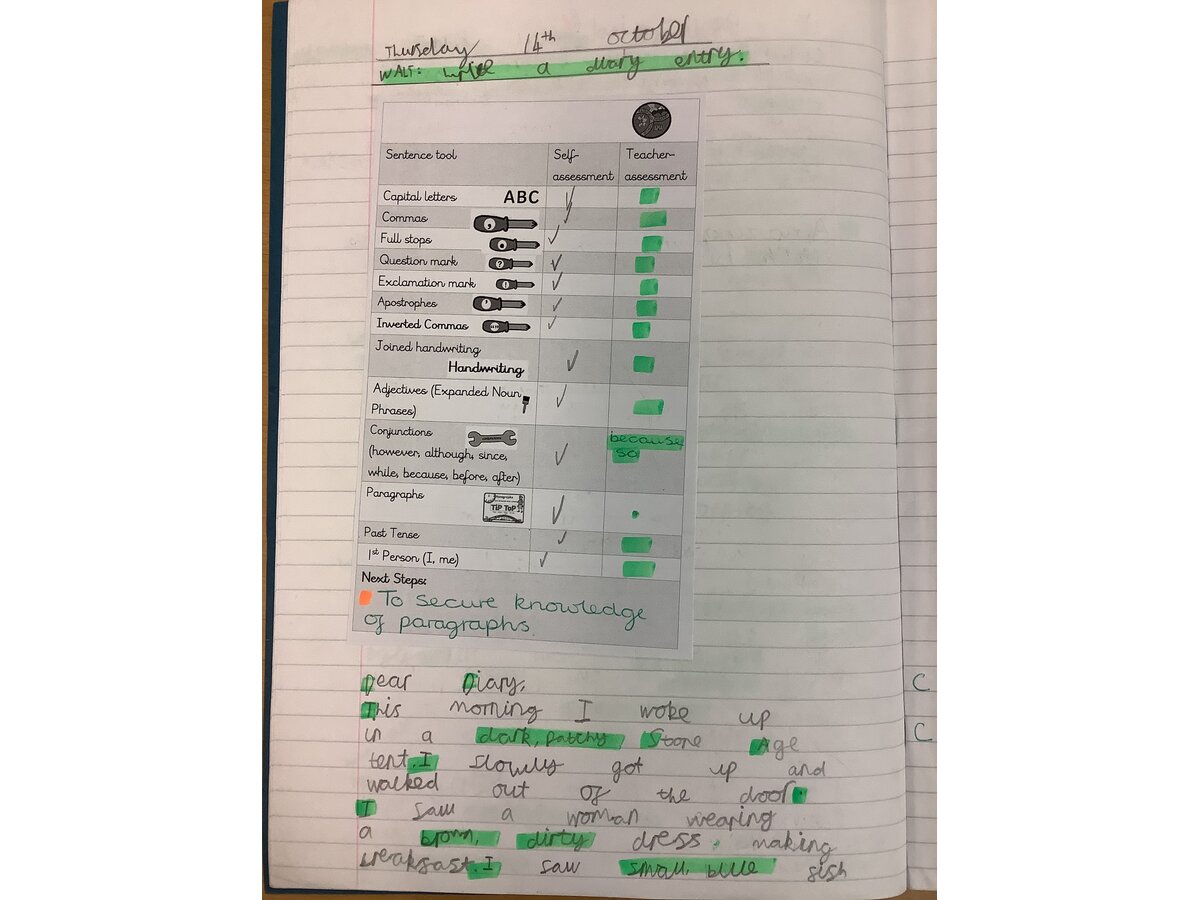 Thursday 14th October
WALT: write a diary entry.
Sentence tool Self-assessment Teacher-assessment
Capital letters ABC
Commas
Full stops
Question mark ?
Exclamation mark !
Apostrophes
Inverted Commas
Joined handwriting
Handwriting
Adjectives (Expanded Noun
Phrases)
Conjunctions because
(however, although, since, so
while, because, before, after)
Paragraphs
TiP ToP
Past Tense
1st Person (I, me)
Next Steps:
To secure knowledge
of paragraphs.
Dear Diary,
This morning I woke up
in a dark, patchy Stone Age
tent. I slowly got up and
walked out of the door.
I saw a woman wearing
a brown, dirty dress. making
breakfast. I saw small, blue sish
C
C